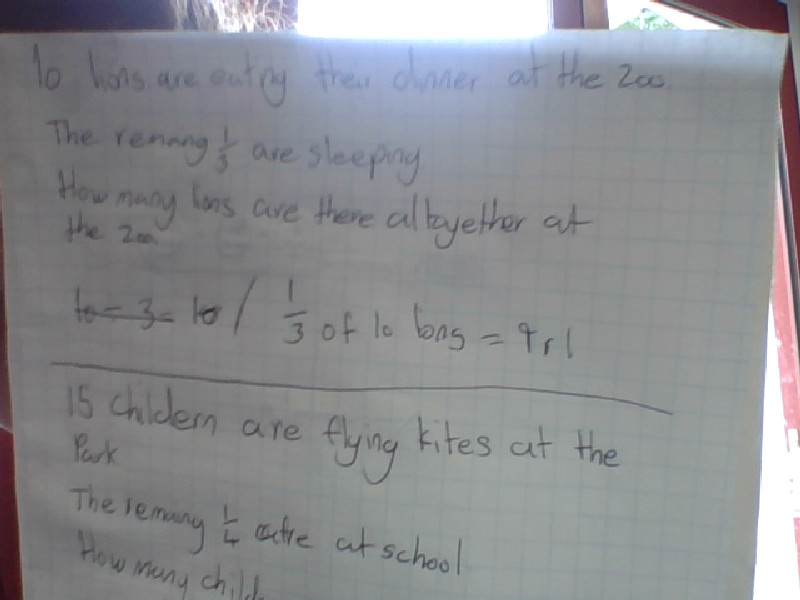 10 lions are eating their dinner at the zoo.
The remang 1/3 are sleeping
How many lions are there altogether at
the zoo.
10 - 3 = 10 / 1/3 of 10 lions = 9 r 1
15 Childern are flying kites at the
Park
The remang 1/4 are at school
How many child